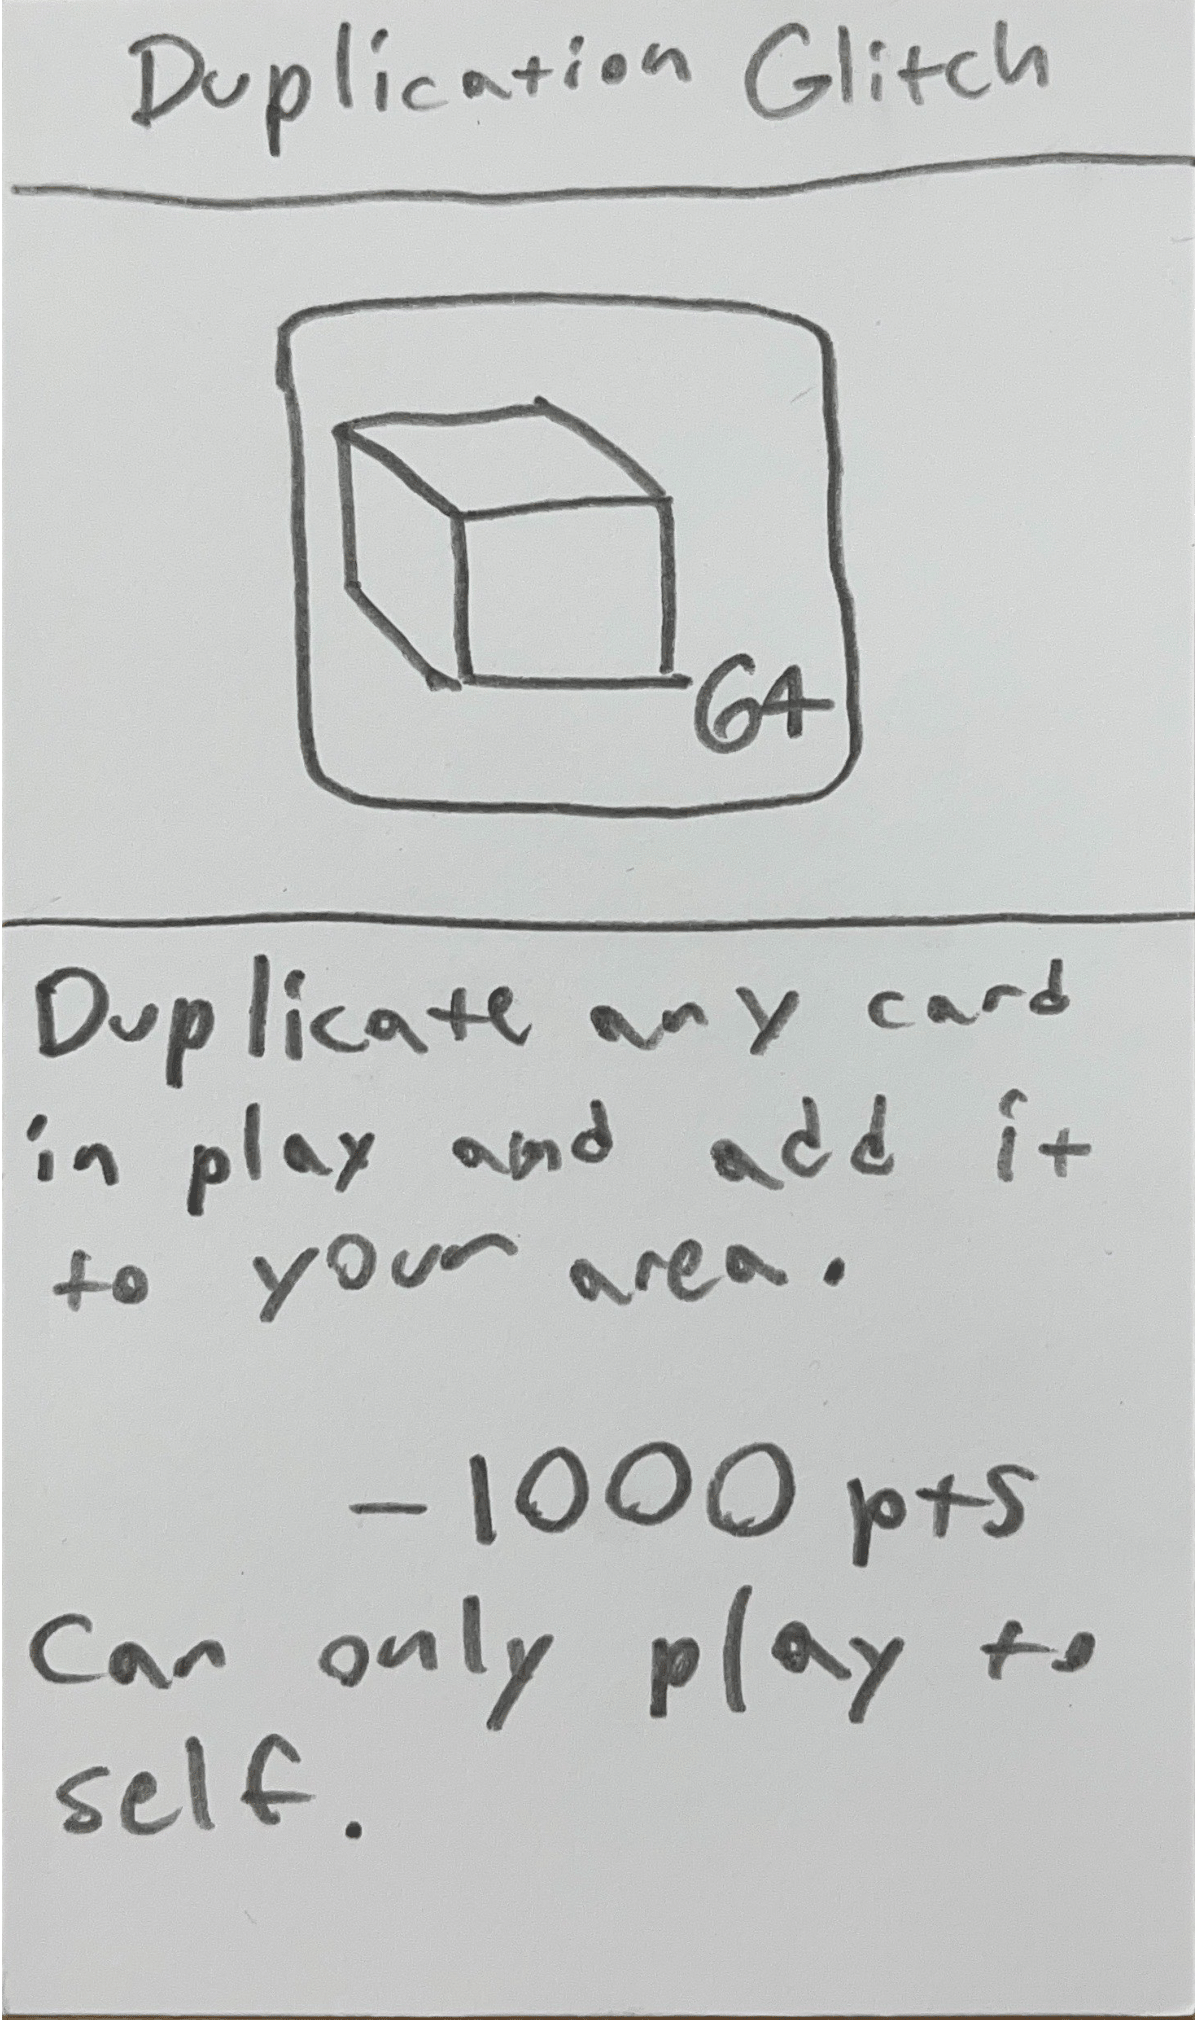 Duplication Glitch
64
Duplicate any card
in play and add it
to your area.
-1000 pts
Can only play to
self.